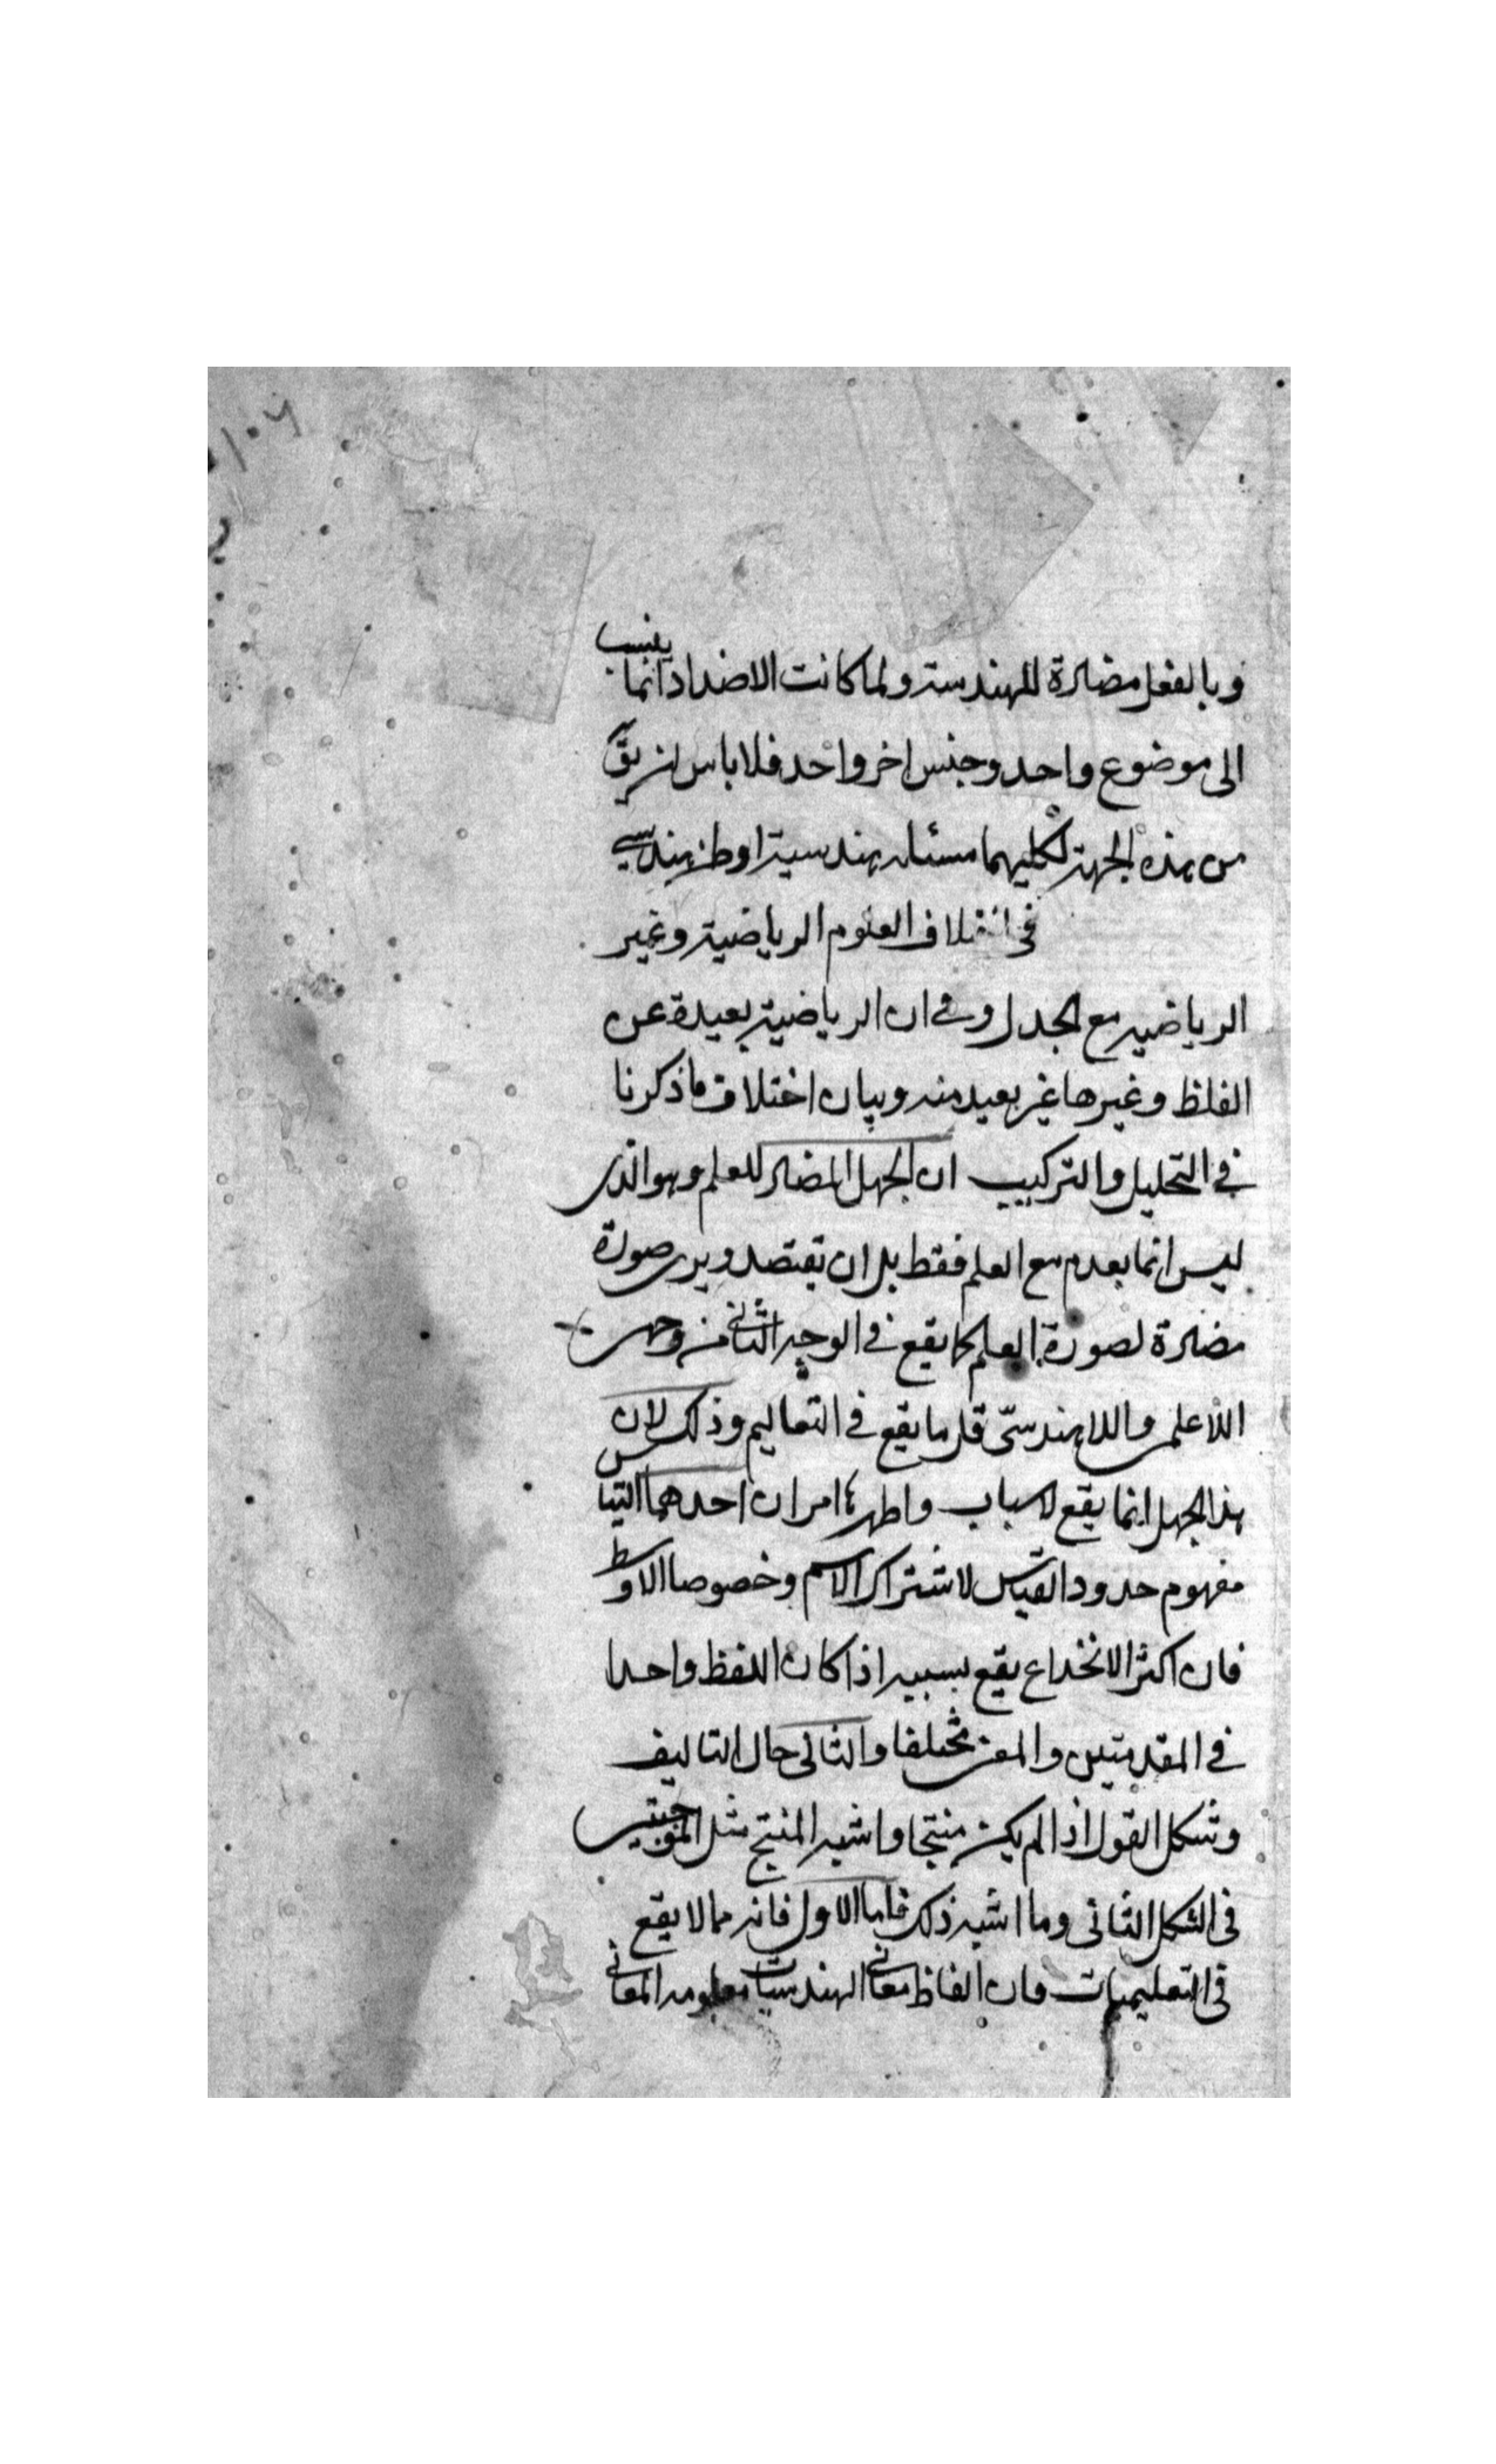 وبالفعل مضادة للهندسة ولما كانت الاضداد انما ينسب
الى موضوع واحد وجنس اخر واحد فلا باس ان يق
من هذه الجهة لكليهما مسئله هندسية او ظن هندسي
في اختلاف العلوم الرياضية وغير
الرياضيه مع الجدل وفي ان الرياضية بعيدة عن
الغلط وغيرها غير بعيد منه وبيان اختلاف ما ذكرنا
في التحليل والتركيب ان الجهل المضاد للعلم وهو الذى
ليس انما يعدم مع العلم فقط بل ان يعتقد ويرى صورة
مضادة لصورة العلم كما يقع في الوجه الثاني من وجهى
اللاعلمى واللاهندسىّ قلما يقع في التعاليم وذلك لان
هذا الجهل انما يقع لاسباب واظهرها امران احدهما التباس
مفهوم حدود القياس لاشتراك الاسم وخصوصا الاوسط
فان اكثر الانخداع يقع بسببه اذا كان اللفظ واحدا
في المقدمتين والمعنى مختلفا والثانى حال التاليف
وشكل القول اذا لم يكن منتجا واشبه المنتج مثل الموجبتين
فى الشكل الثانى وما اشبه ذلك فاما الاول فانه مما لا يقع
فى التعليميات فان الفاظ معانى الهندسيات معلومه المعانى